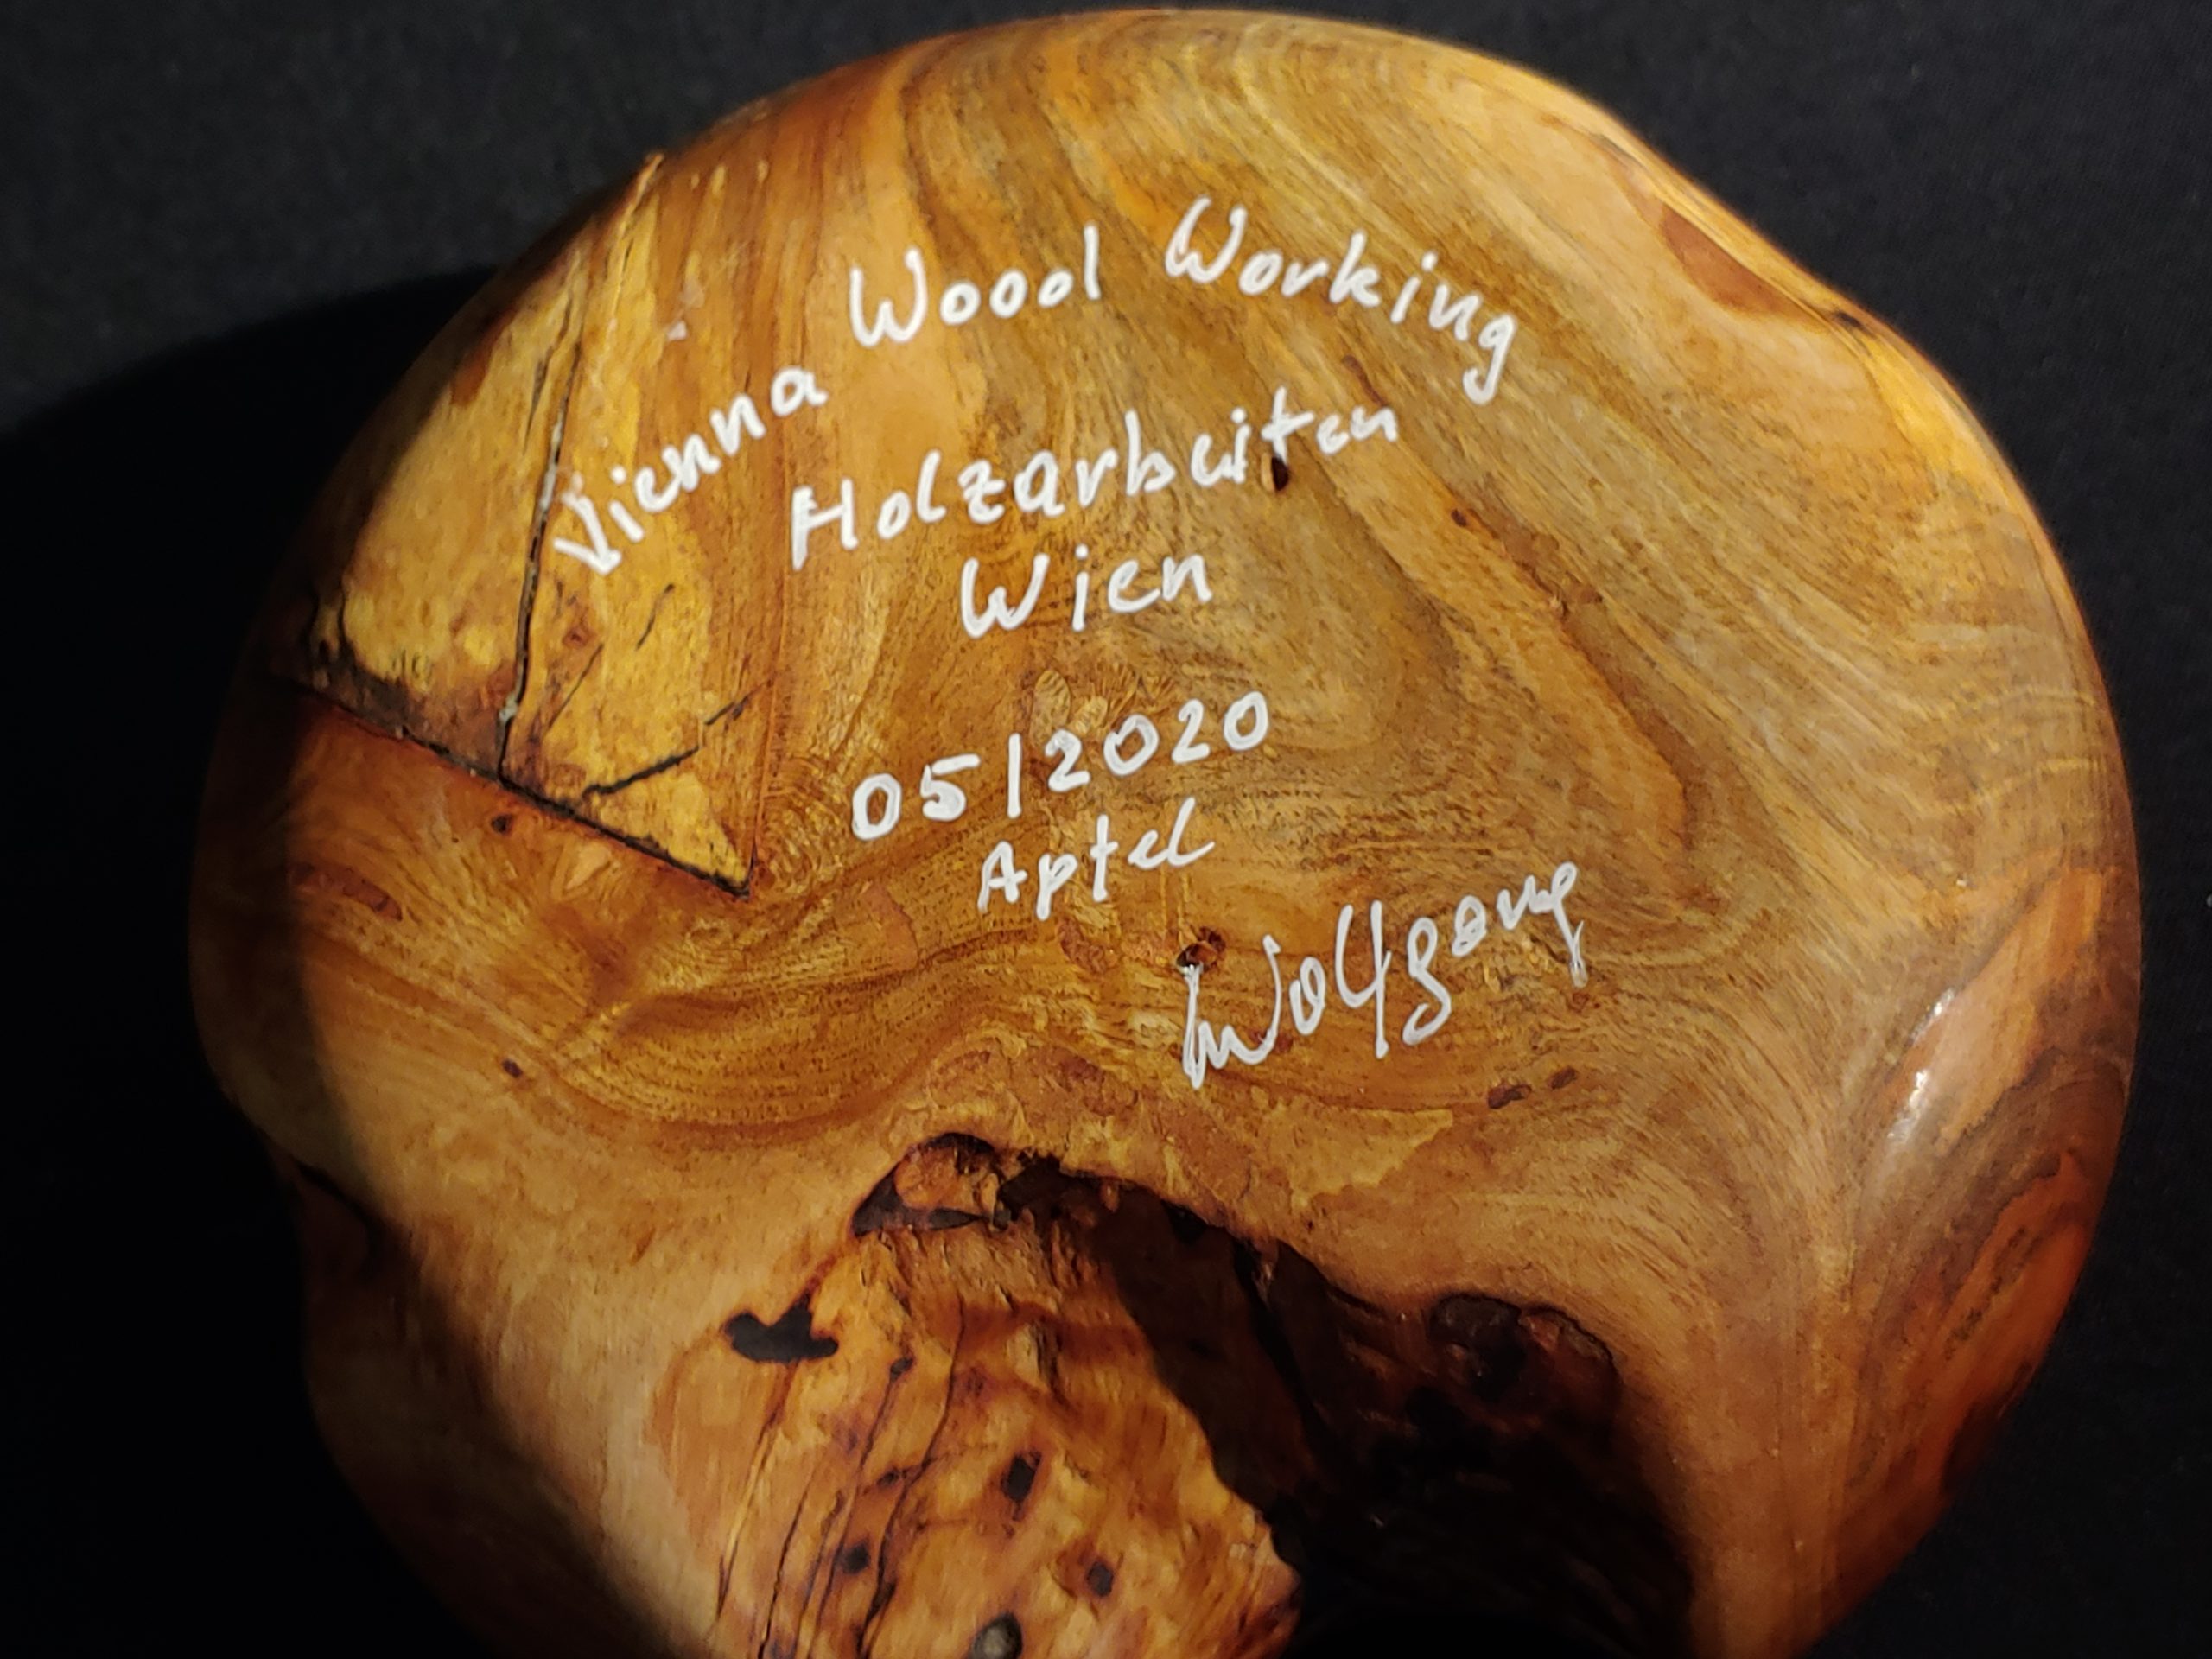 Vienna Wood Working
Holzarbeiten
Wien
05/2020
Apfel
Wolfgang